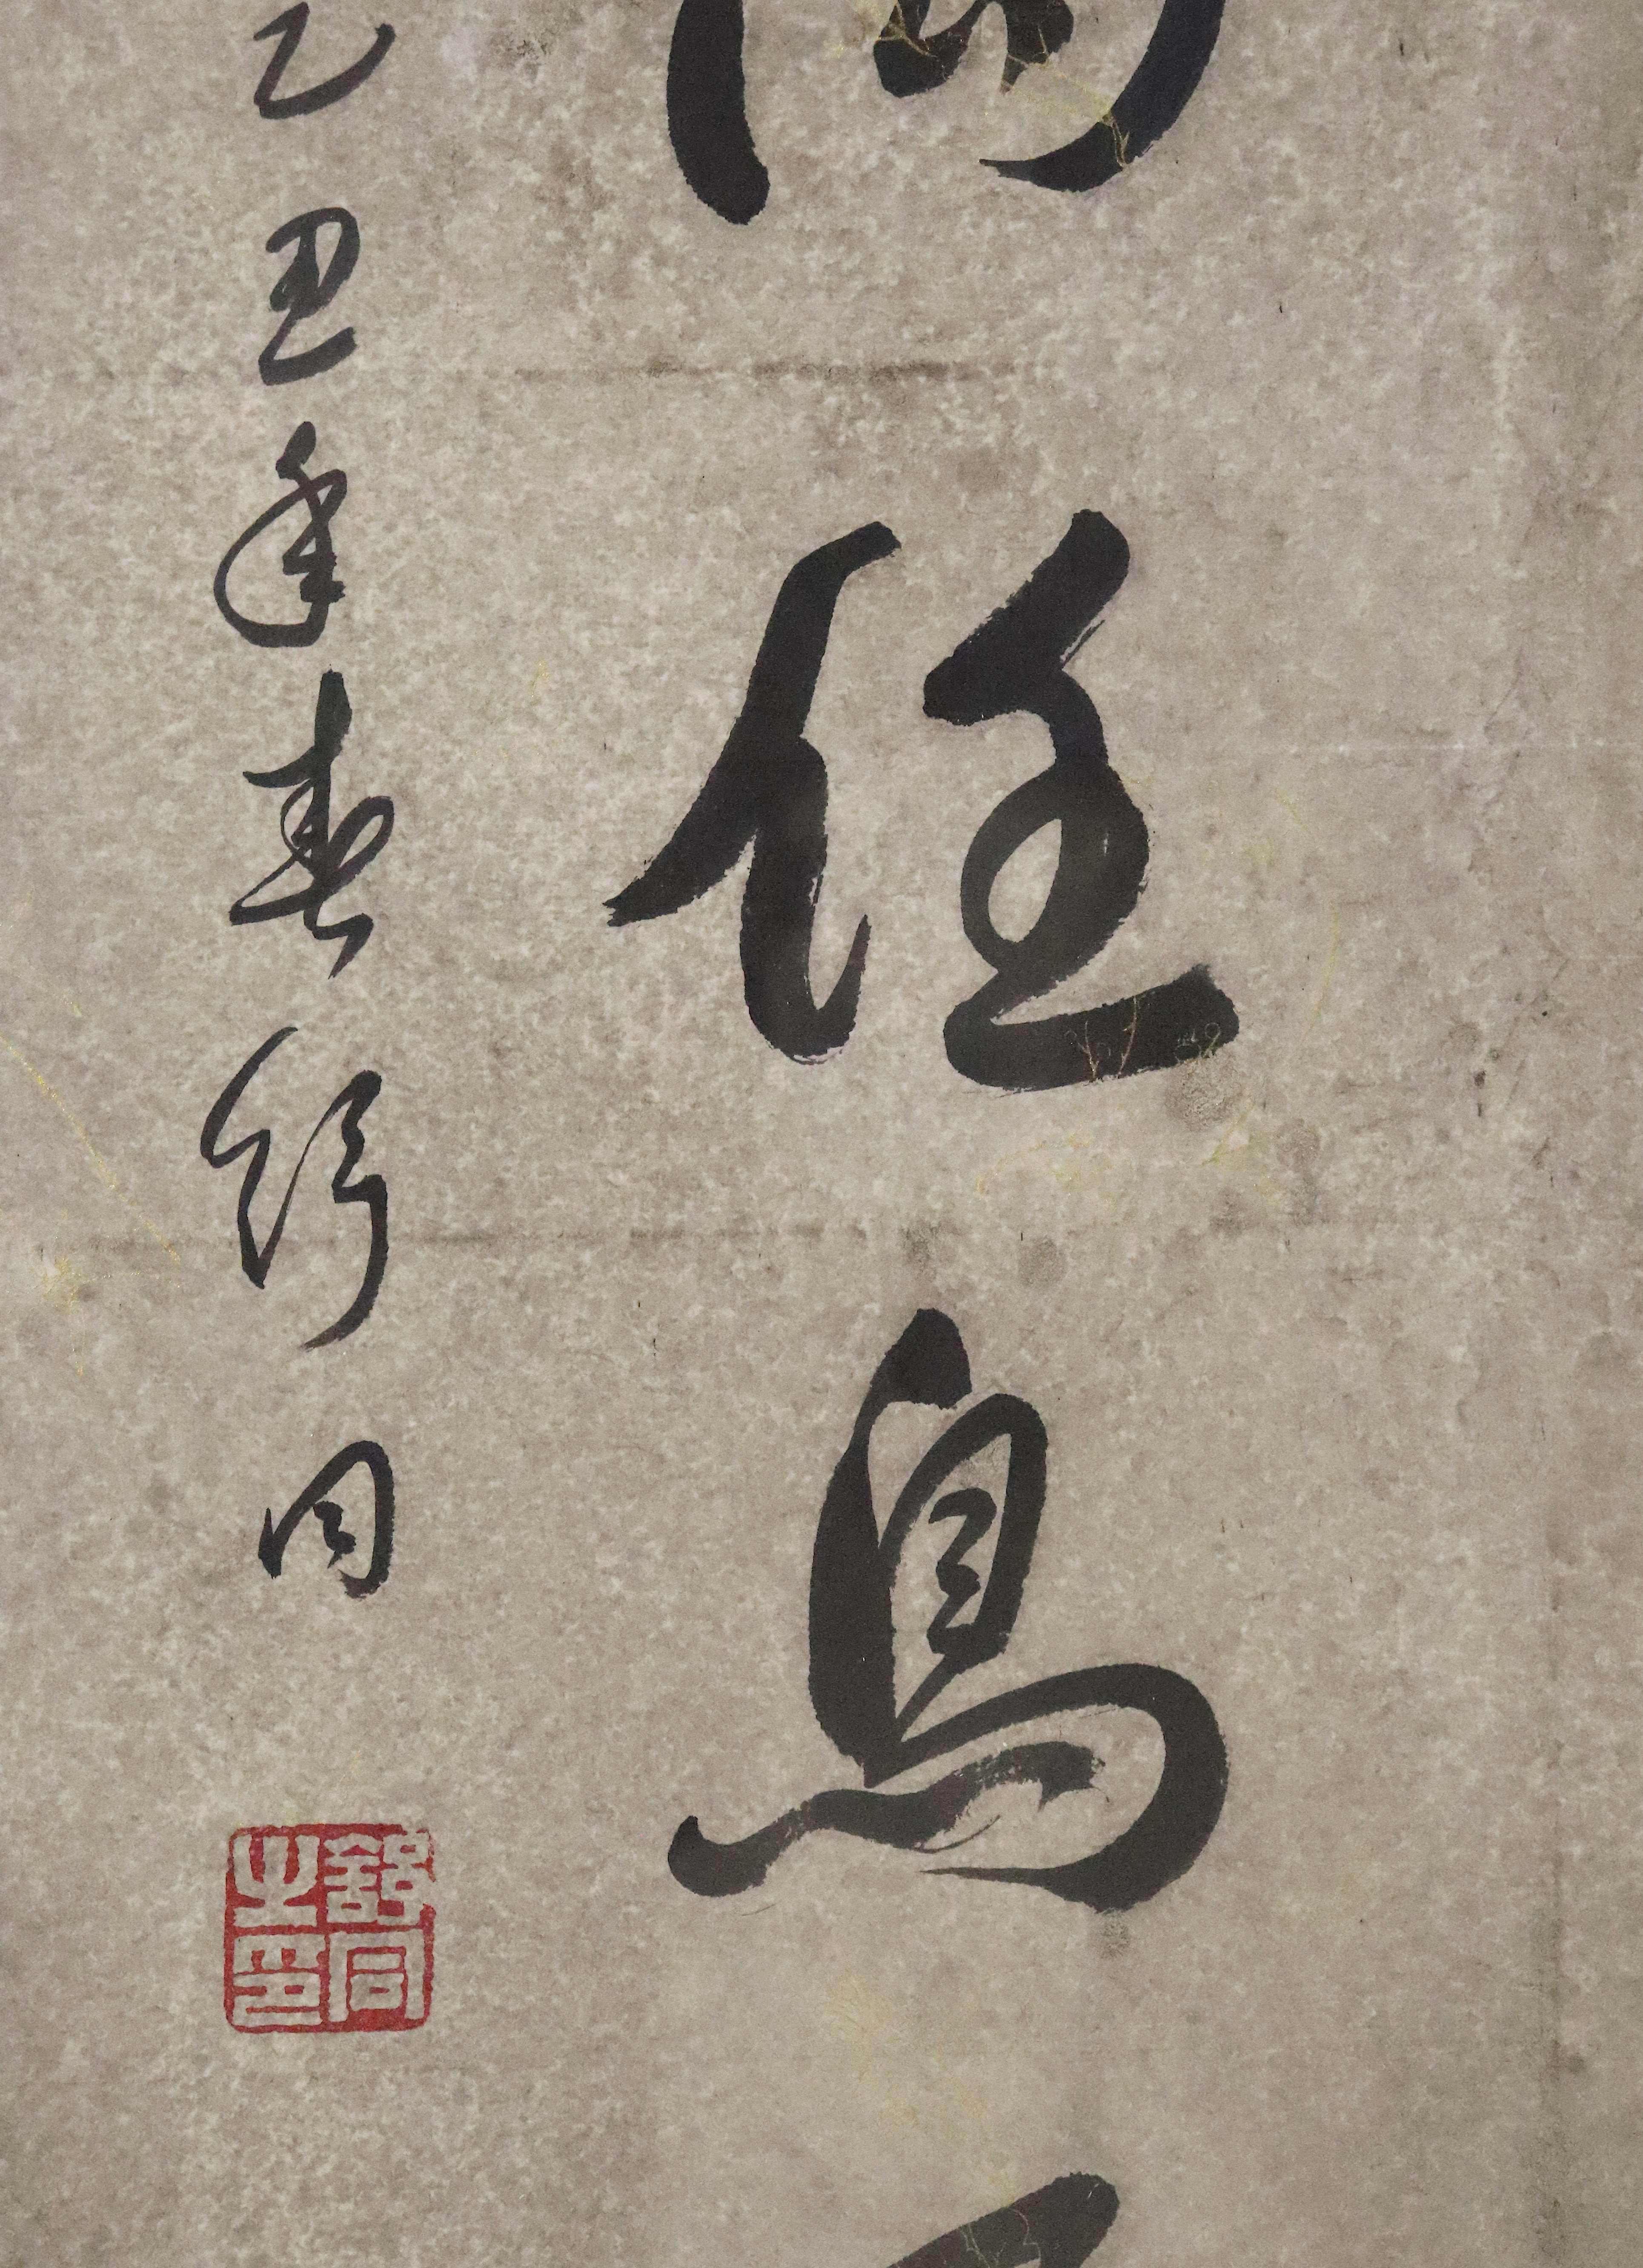 任鳥
乙丑年春舒同
舒同之印